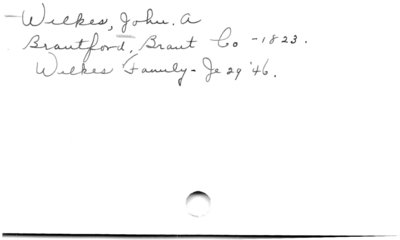 Wilkes, John. A
Brantford, Brant Co - 1823.
Wilkes Family - Je 29 '46.